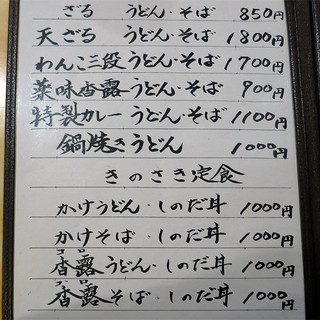 ざる うどん・そば 850円
天ざる うどん・そば 1800円
わんこ三段うどん・そば 1700円
薬味香露うどん・そば 900円
特製カレーうどん・そば 1100円
鍋焼きうどん 1000円
きのさき定食
かけうどん・しのだ丼 1000円
かけそば・しのだ丼 1000円
香露うどん・しのだ丼 1000円
香露そば・しのだ丼 1000円